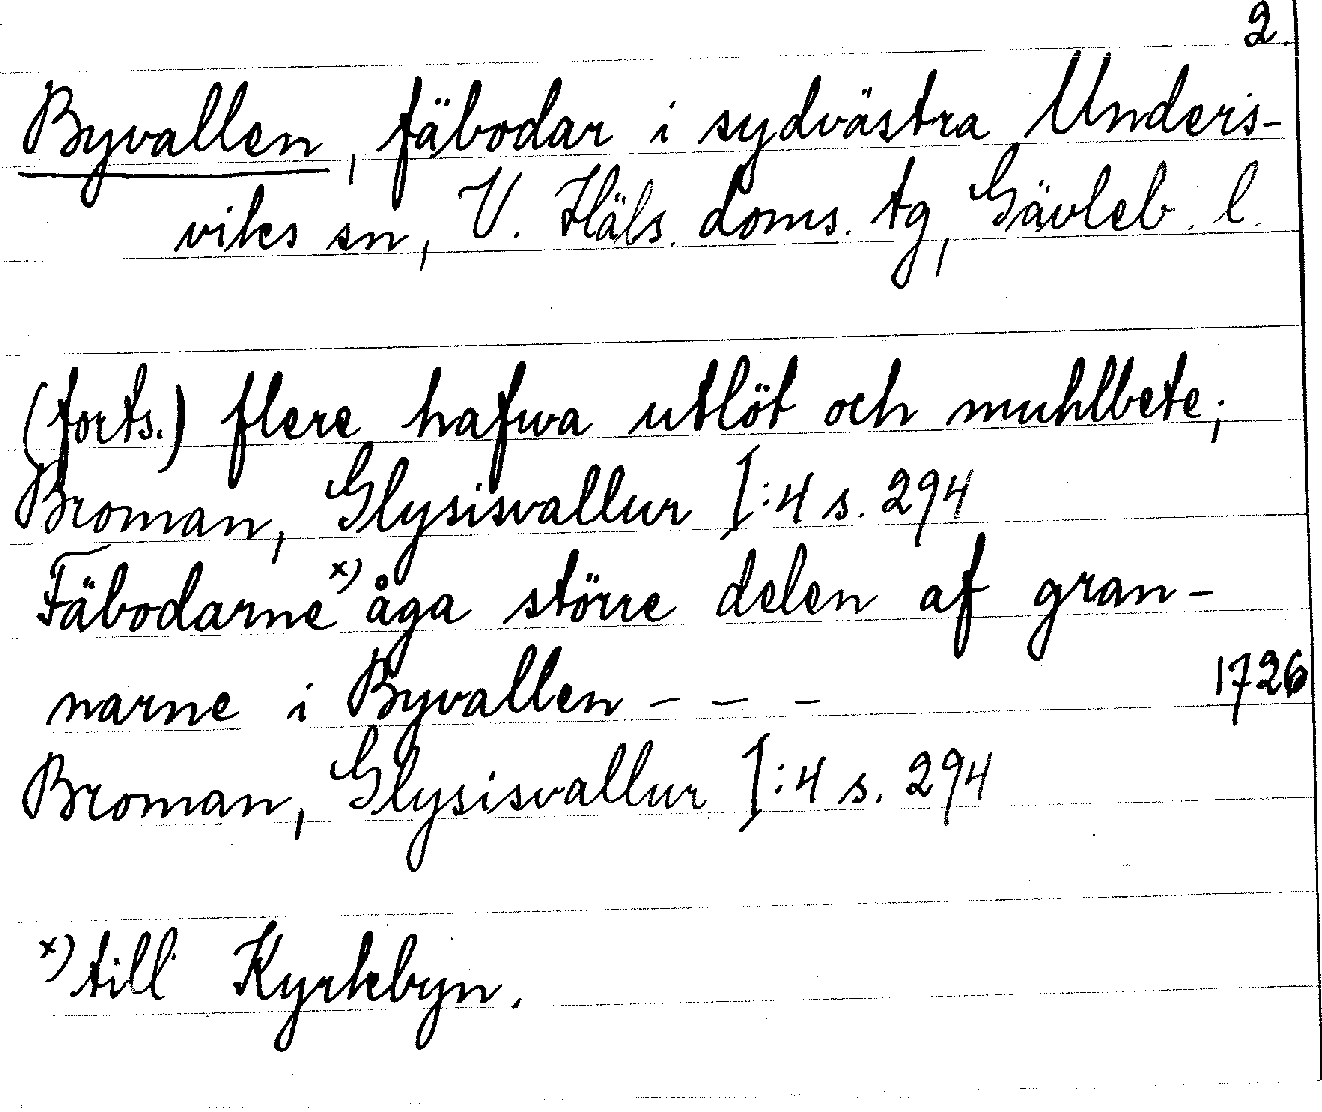 2.
Byvallen, fäbodar i sydvästra Unders-
viks sn, V. Häls. doms. tg, Gävleb. l.
(forts.) flere hafwa utlöt och muhlbete;
Broman, Glysisvallur I:4 s. 294
Fäbodarne x) åga större delen af gran-
narne i Byvallen - - - 1726
Broman, Glysisvallur I:4 s. 294
x) till Kyrkbyn.